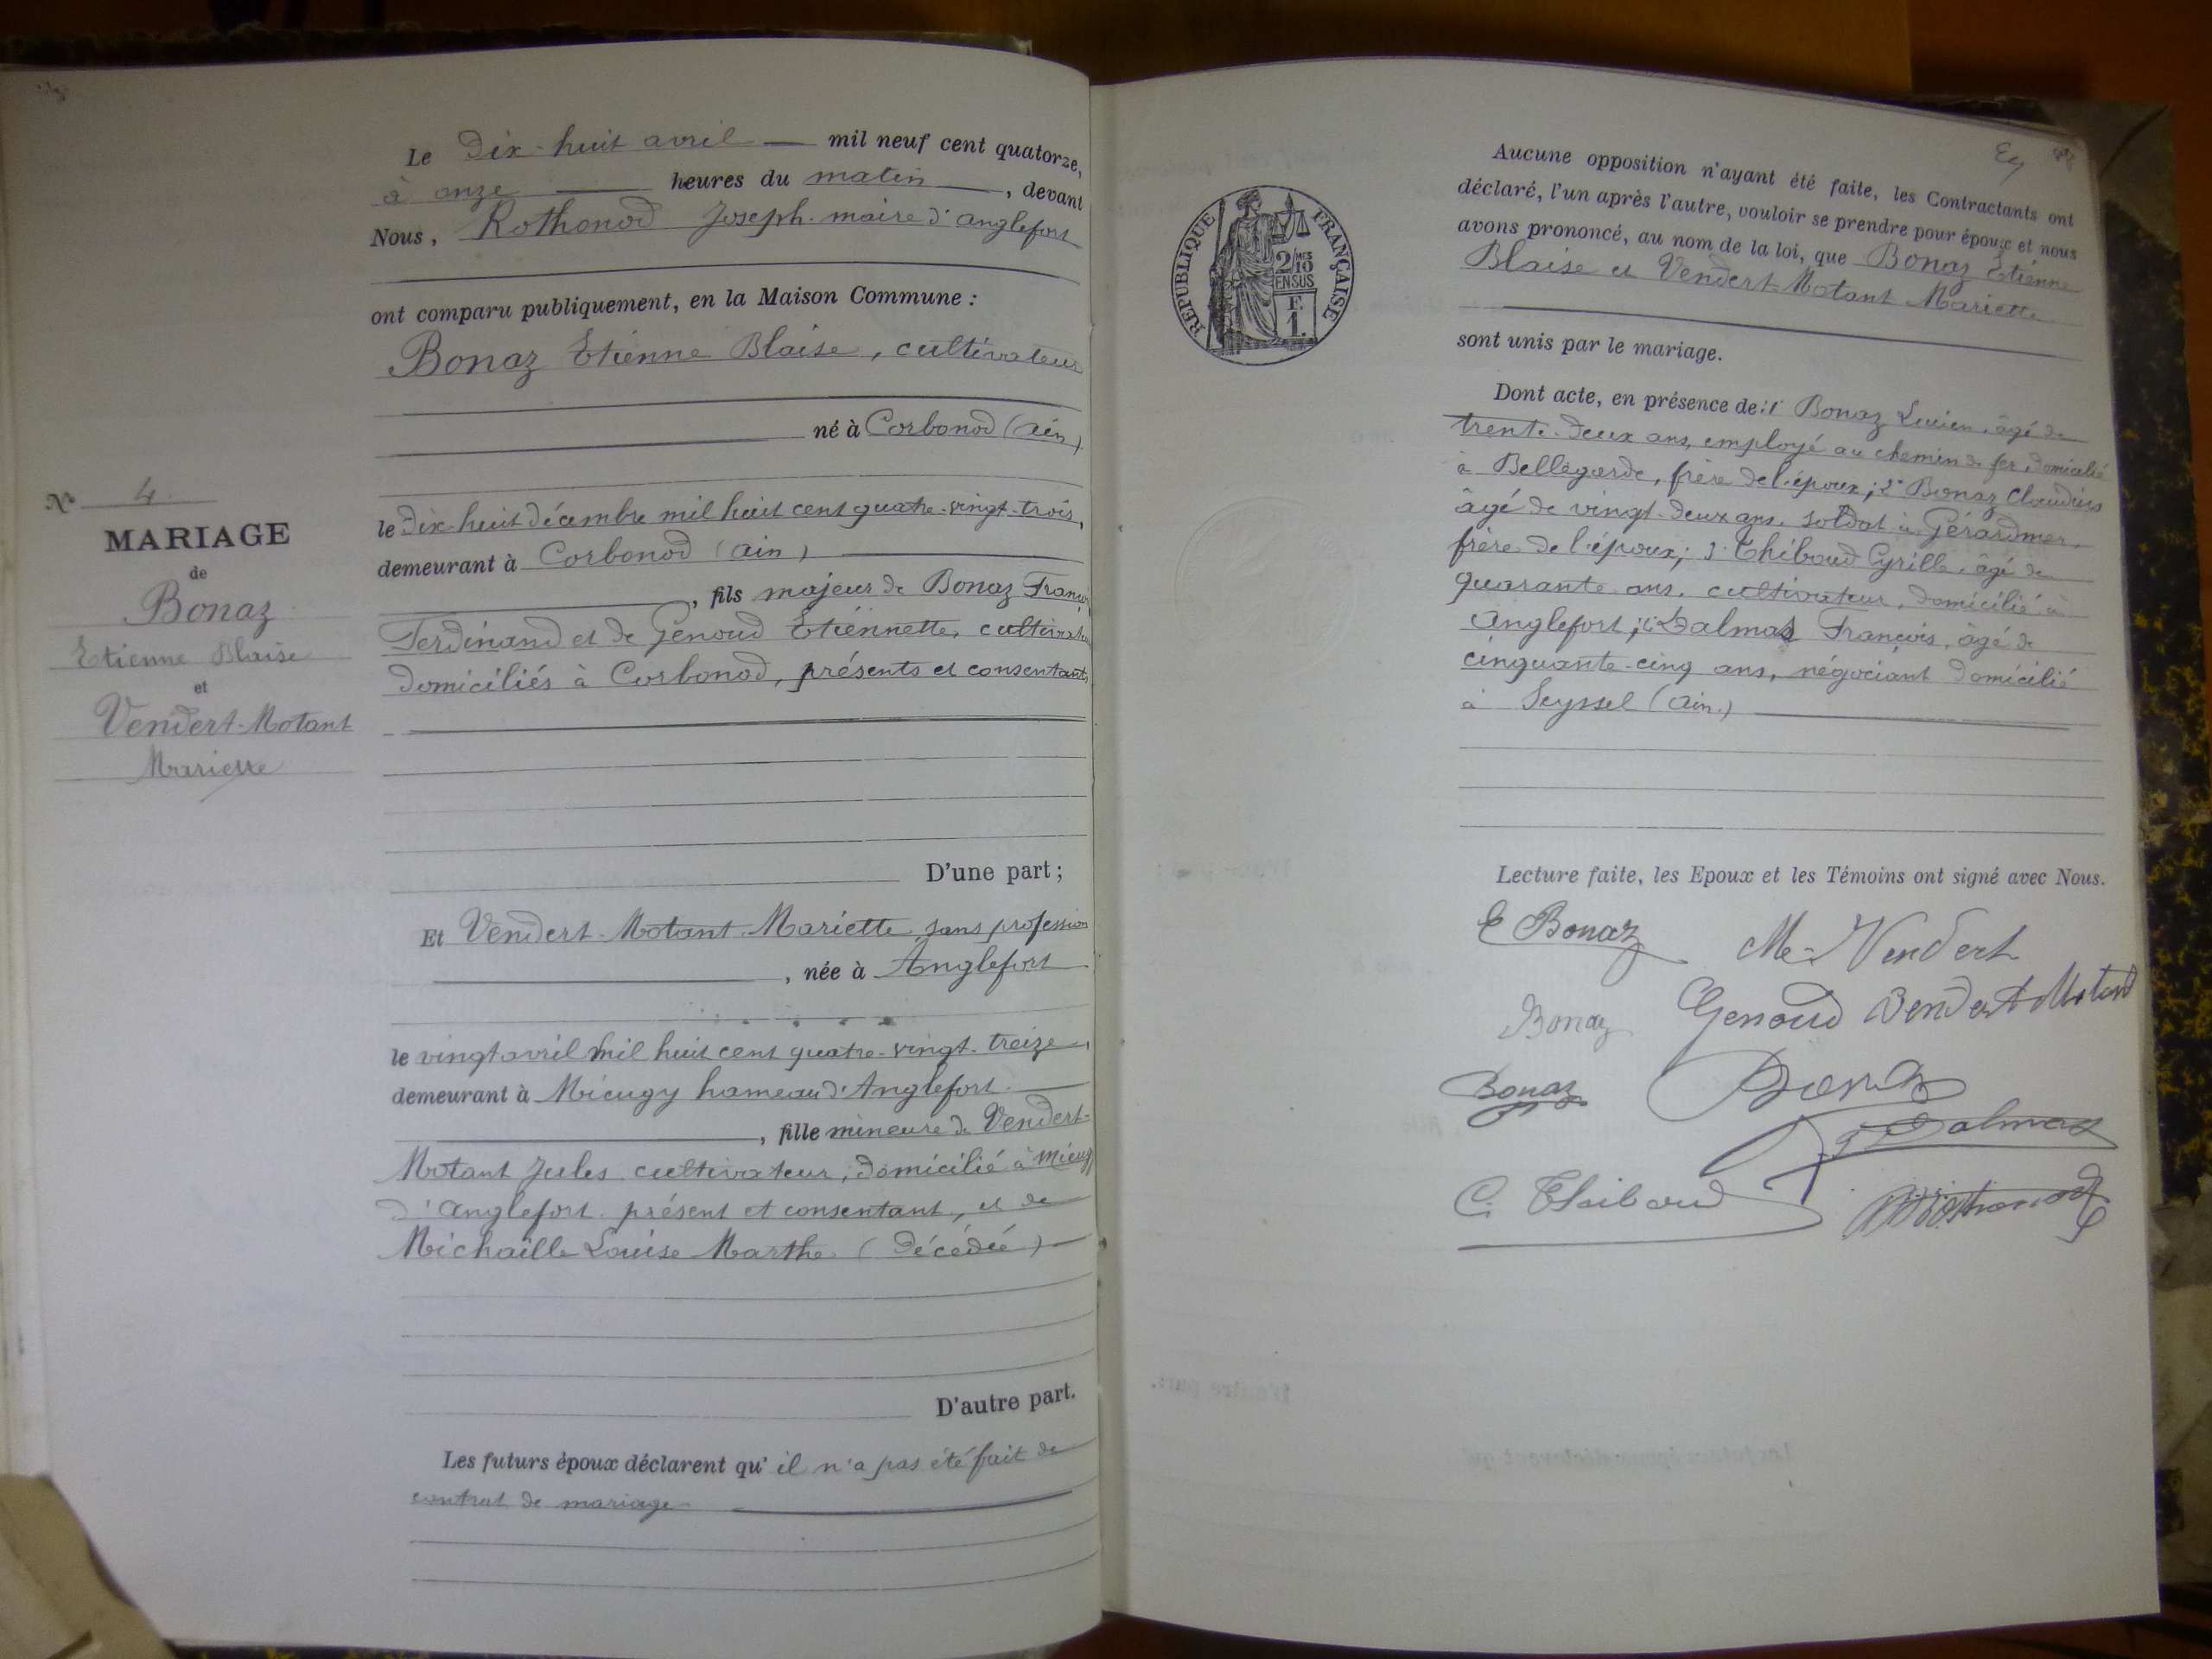 Le Dix-huit avril mil neuf cent quatorze,
à onze heures du matin, devant
Nous, Rothonod Joseph maire d'anglefort
ont comparu publiquement, en la Maison Commune :
Bonaz Etienne Blaise, cultivateur
né à Corbonod (ain)
le Dix-huit décembre mil huit cent quatre-vingt-trois,
demeurant à Corbonod (ain)
, fils majeur de Bonaz François
Ferdinand et de Genoud Etiennette, cultivateurs
domiciliés à Corbonod, présents et consentants
N° 4
MARIAGE
de
Bonaz
Etienne Blaise
et
Vendert-Motant
Mariette
D'une part ;
Et Vendert-Motant Mariette sans profession
, née à Anglefort
le vingt avril mil huit cent quatre-vingt-treize,
demeurant à Mieugy hameau d'Anglefort
, fille mineure de Vendert-
Motant Jules cultivateur, domicilié à Mieugy
d'Anglefort présent et consentant, et de
Michaille Louise Marthe (décédée)
D'autre part.
Les futurs époux déclarent qu'il n'a pas été fait de
contrat de mariage
REPUBLIQUE FRANÇAISE
2/10MES
EN SUS
F.
1.
Aucune opposition n'ayant été faite, les Contractants ont
déclaré, l'un après l'autre, vouloir se prendre pour époux et nous
avons prononcé, au nom de la loi, que Bonaz Etienne
Blaise et Vendert-Motant Mariette
sont unis par le mariage.
Dont acte, en présence de : 1° Bonaz Lucien, âgé de
trente-deux ans, employé au chemin de fer, domicilié
à Bellegarde, frère de l'époux ; 2° Bonaz Claudius
âgé de vingt-deux ans, soldat à Gérardmer,
frère de l'époux ; 3° Thiboud Cyrille, âgé de
quarante ans, cultivateur, domicilié à
Anglefort ; 4° Dalmas François, âgé de
cinquante-cinq ans, négociant domicilié
à Seyssel (ain.)
Lecture faite, les Epoux et les Témoins ont signé avec Nous.
E Bonaz Me Vendert
Bonaz Genoud Vendert Motant
Bonaz Bonaz
F Dalmas
C. Thiboud Rothonod